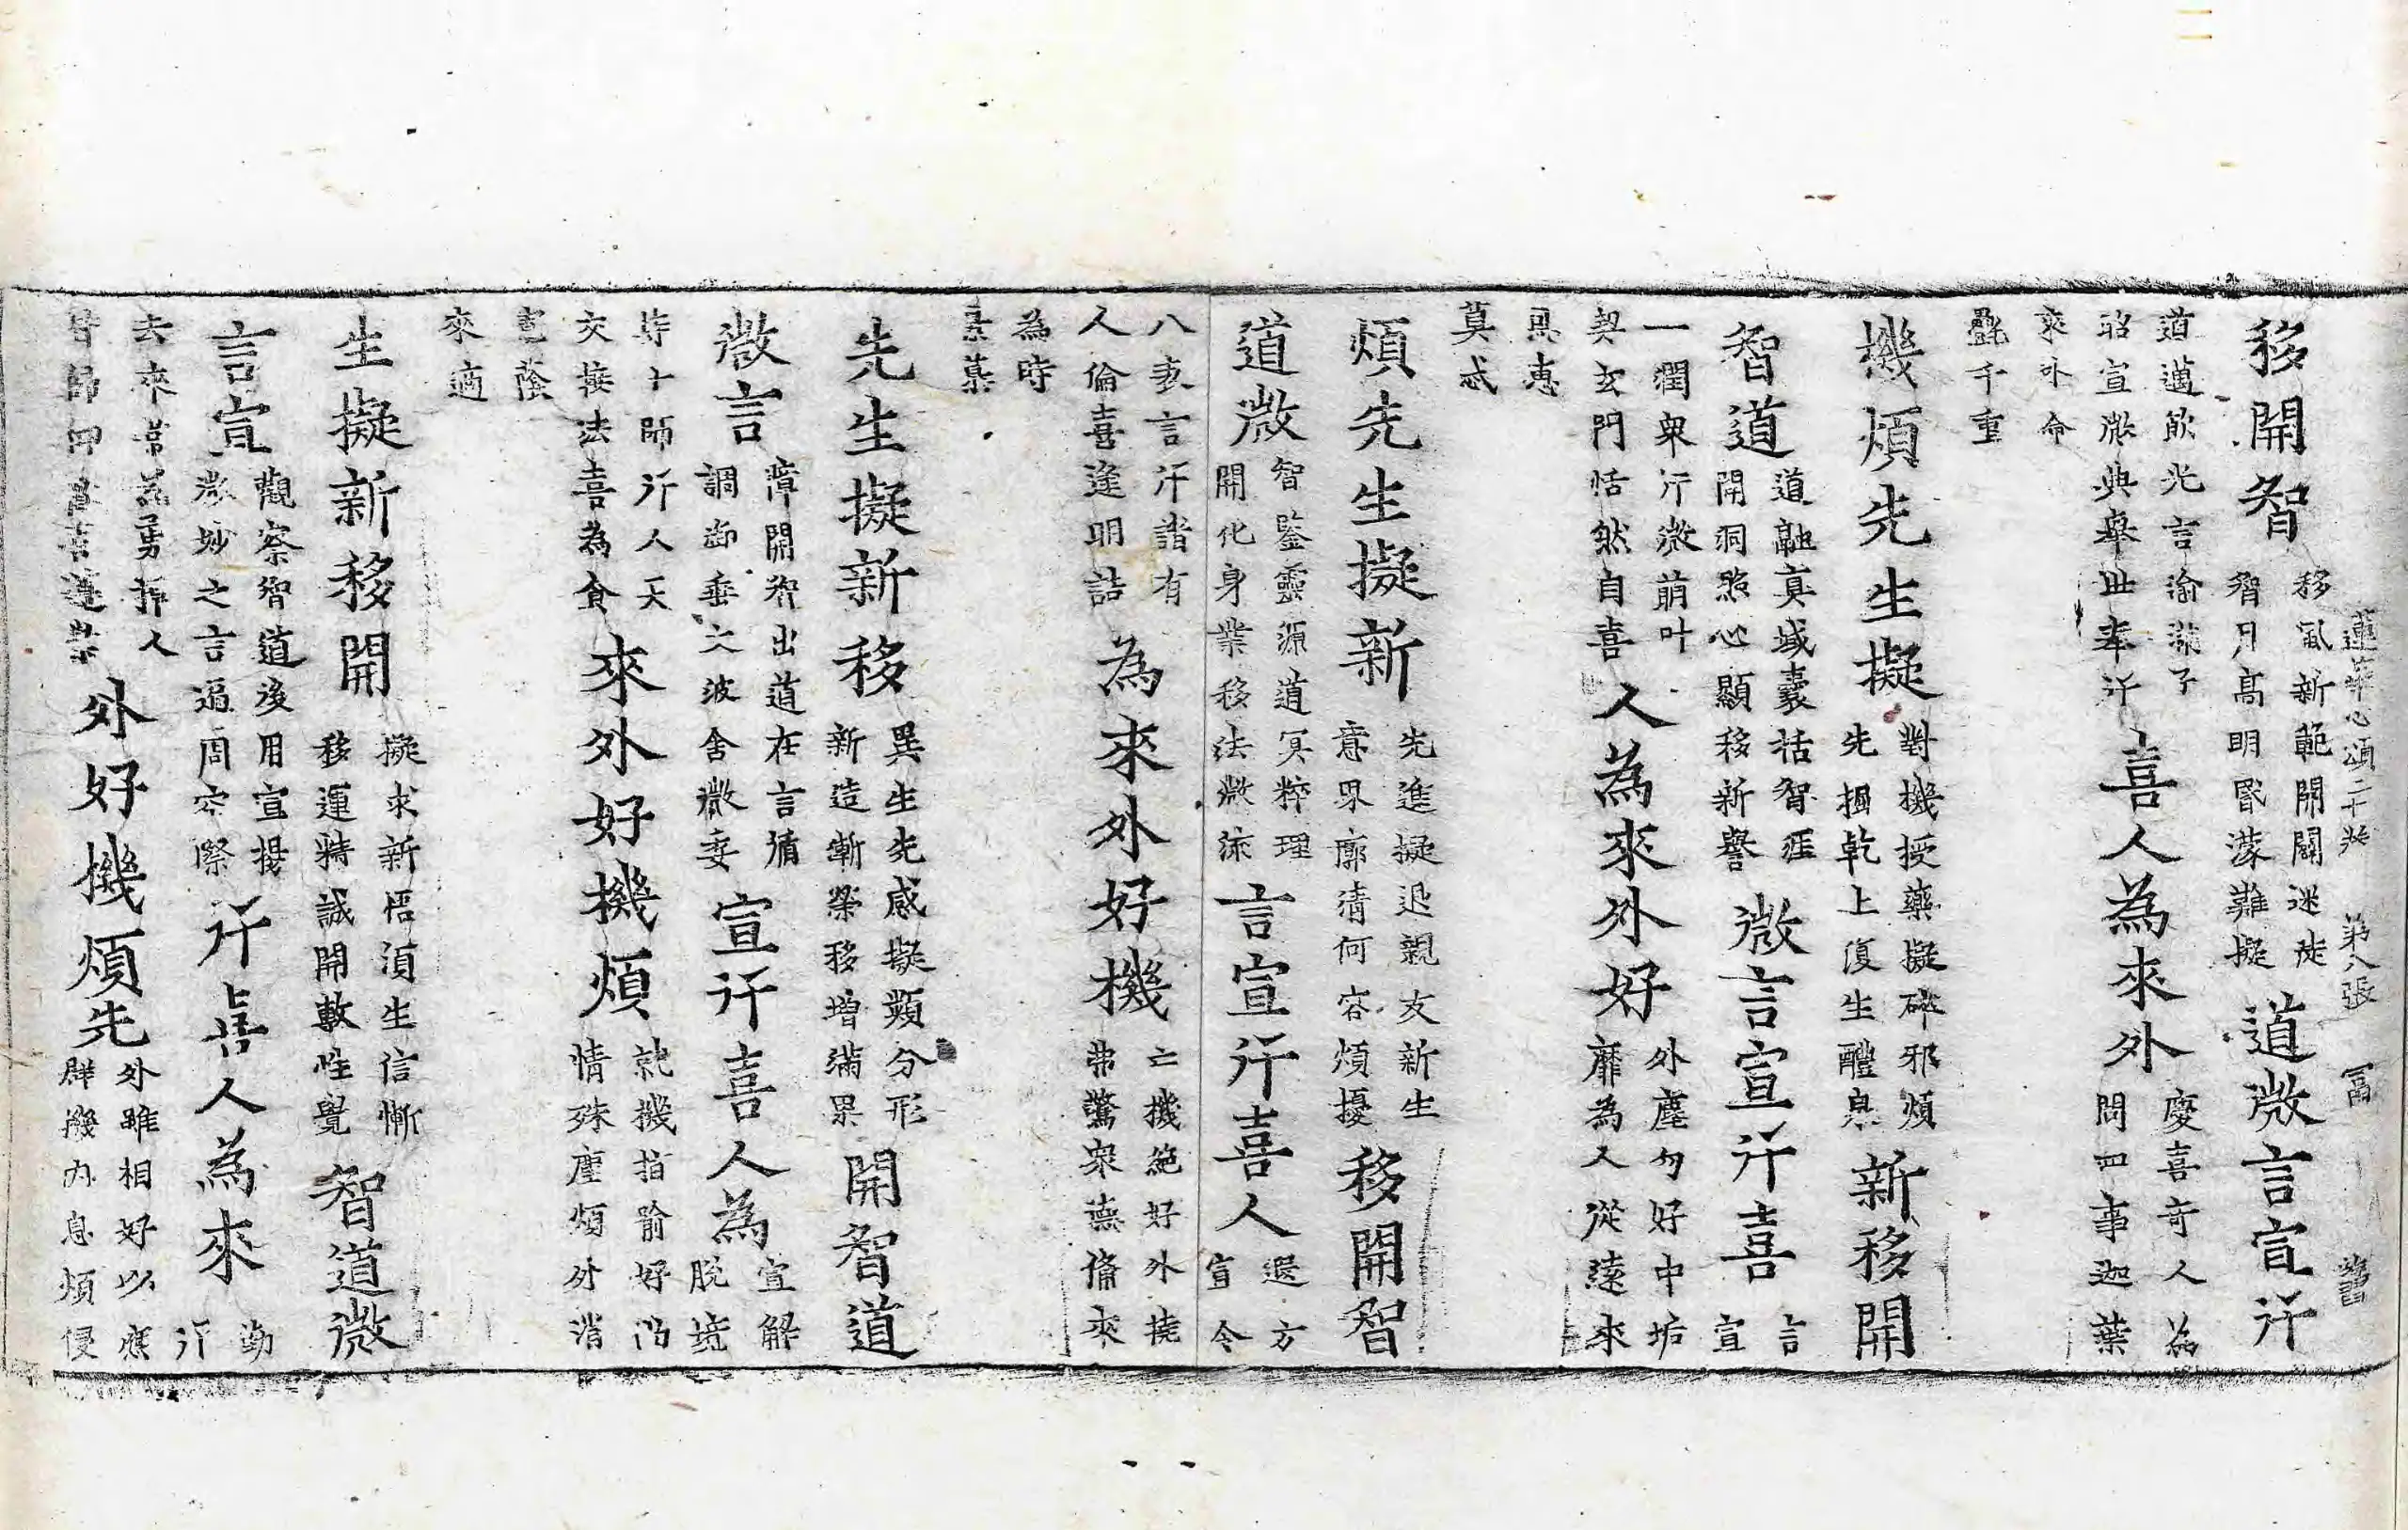 蓮華心頌二十 第八張
移開智
移風新範開闢迷徒
智月高明昏蒙難擬
道微言宣行
道邁飲光言渝
昭宣微典舉世奉行
喜人為來外
慶喜奇人為
問四事迦葉
乘外命
疊千重
機煩先生擬
對機授藥擬碎邪煩
先掴乾上復生醴泉
新移開
智道
道融真域橐括智涯
開洞照心顯移新譽
微言宣行喜
言
宣
一潤衆行微萌叶
契玄門恬然自喜
人為來外好
外塵勿好中垢
靡為人從遠來
恩惠
莫忒
煩先生擬新
先進擬退親友新生
意界廓清何容煩擾
移開智
道微
智鑒靈源道冥粹理
開化身業移法微流
言宣行喜人
遐方
宣令
八表言行諧有
人倫喜逢明詰
為來外好機
亡機絶好外撓
弗驚衆德俻來
為時
景慕
先生擬新移
異生先感擬顯分形
新造漸榮移增滿累
開智道
微言
障開智出道在言循
調御垂文波含微委
宣行喜人為
宣解
脫境
等十師行人天
交接法喜為食
來外好機煩
就機指喻好
情殊塵煩外消
蔭
來適
生擬新移開
擬求新悟須生信慚
移運精誠開敷性覺
智道微
言宣
觀察智道後用宣揚
微妙之言遍周空際
行喜人為來
勤
行
去來常為勇猛人
外好機煩先
外雖相好以應
群機內息煩侵